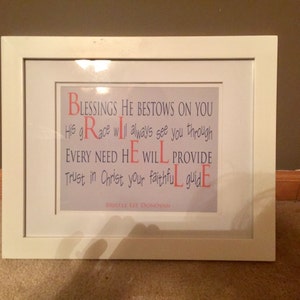 BLESSINGS HE BESTOWS ON YOU
His gRace will always see you through
EVERY NEED HE WILL PROVIDE
Trust in Christ your faithfuL guidE